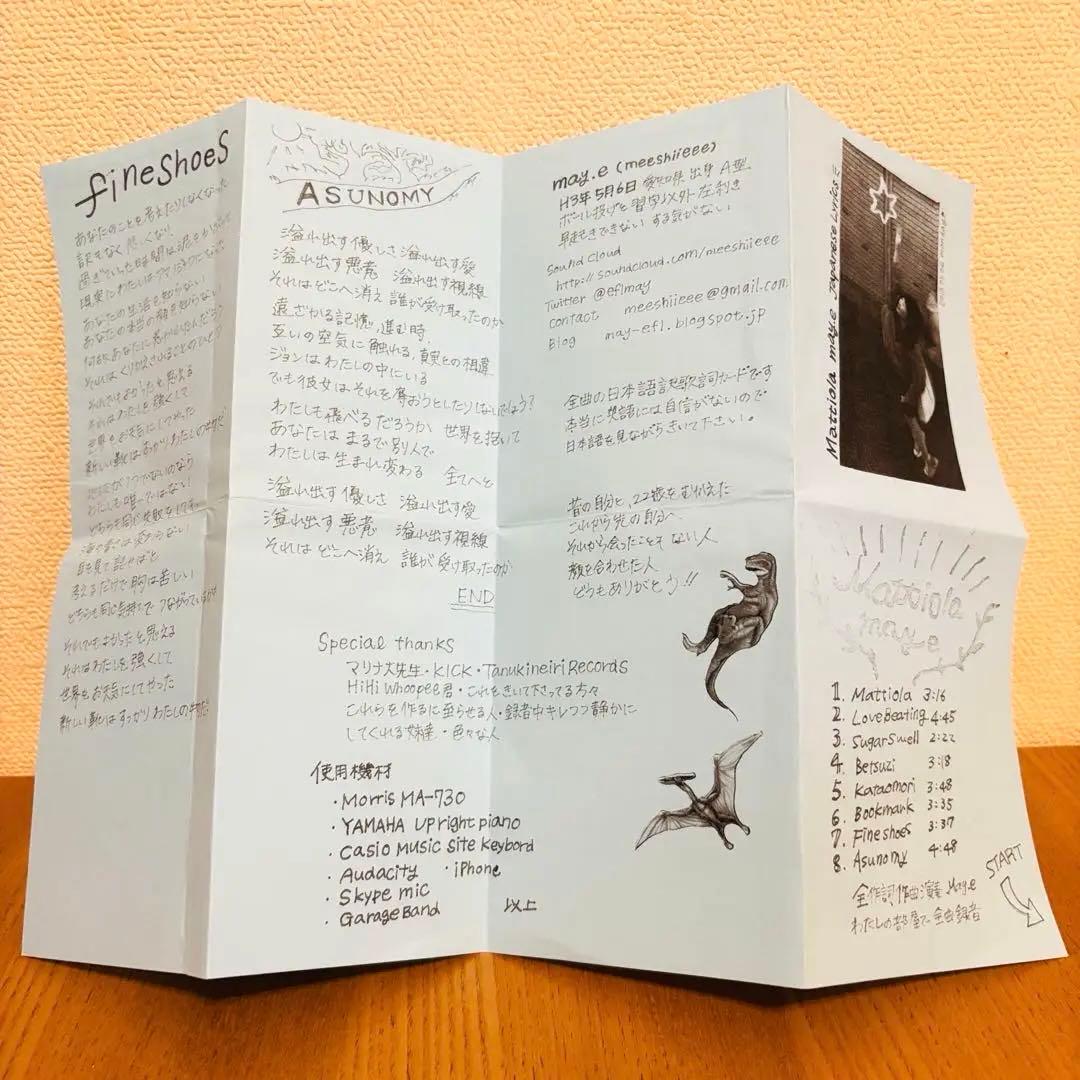 fineshoes
あなたのことを考えたりしなくなった
訳もなく悲しくなり
現実にわたしは
あなたの生活を知らない
あなたの本当の顔を知らない
何故あなたに惹かれたんだろう
それはくり返されることのひとつ
それでもよかったと思える
それはわたしを強くして
世界をお天気にしてやった
新しい靴はすっかりわたしの
わたしも唯一ではない
どちらも同じ失敗をしてる
目を見て話せばと
考えるだけで胸は苦しい
どちらも同じ気持ちでつながっている
それでもよかったと思える
それはわたしを強くして
世界をお天気にしてやった
新しい靴はすっかりわたしの
ASUNOMY
溢れ出す優しさ 溢れ出す愛
溢れ出す悪意 溢れ出す視線
それはどこへ消え 誰が受け取ったのか
遠ざかる記憶、進む時、
互いの空気に触れる、真実との相違
ジョンはわたしの中にいる
でも彼女はそれを奪おうとしたりしないでしょう?
わたしも飛べるだろうか 世界を抱いて
あなたは まるで別人で
わたしは生まれ変わる 全てへと
溢れ出す優しさ 溢れ出す愛
溢れ出す悪意 溢れ出す視線
それは どこへ消え 誰が受け取ったのか
END
Special thanks
マリナ大先生・KICK・Tanukineiri Records
HiHi Whoopee君・これをきいて下さってる方々
これらを作るに至らせる人・録音中キレつつ静かに
してくれる妹達・色々な人
使用機材
・Morris MA-730
・YAMAHA Upright piano
・Casio Music Site Keybord
・Audacity ・iPhone
・Skype mic
・GarageBand
以上
may.e (meeshiieee)
H3年5月6日 愛知県出身 A型
ボール投げと習字以外左利き
早起きできない する気がない
Sound Cloud
http://soundcloud.com/meeshiieee
Twitter @eflmay
contact meeshiieee@gmail.com
Blog may-efl.blogspot.jp
全曲の日本語詞歌詞カードです
本当に英語には自信がないので
日本語を見ながらきいて下さい。
昔の自分と、22歳をむかえた
これから先の自分へ
それから会ったことも ない人
顔を合わせた人
どうもありがとう!!
Mattiola may.e Japanese Lyrics
Mattiola
may.e
1. Mattiola 3:16
2. LoveBeating 4:45
3. SugarSwell 2:22
4. Betsuzi 3:18
5. Kataomori 3:48
6. Bookmark 3:35
7. Fineshoes 3:37
8. Asunomy 4:48
全作詞作曲演奏 may.e
わたしの部屋で全曲録音
START